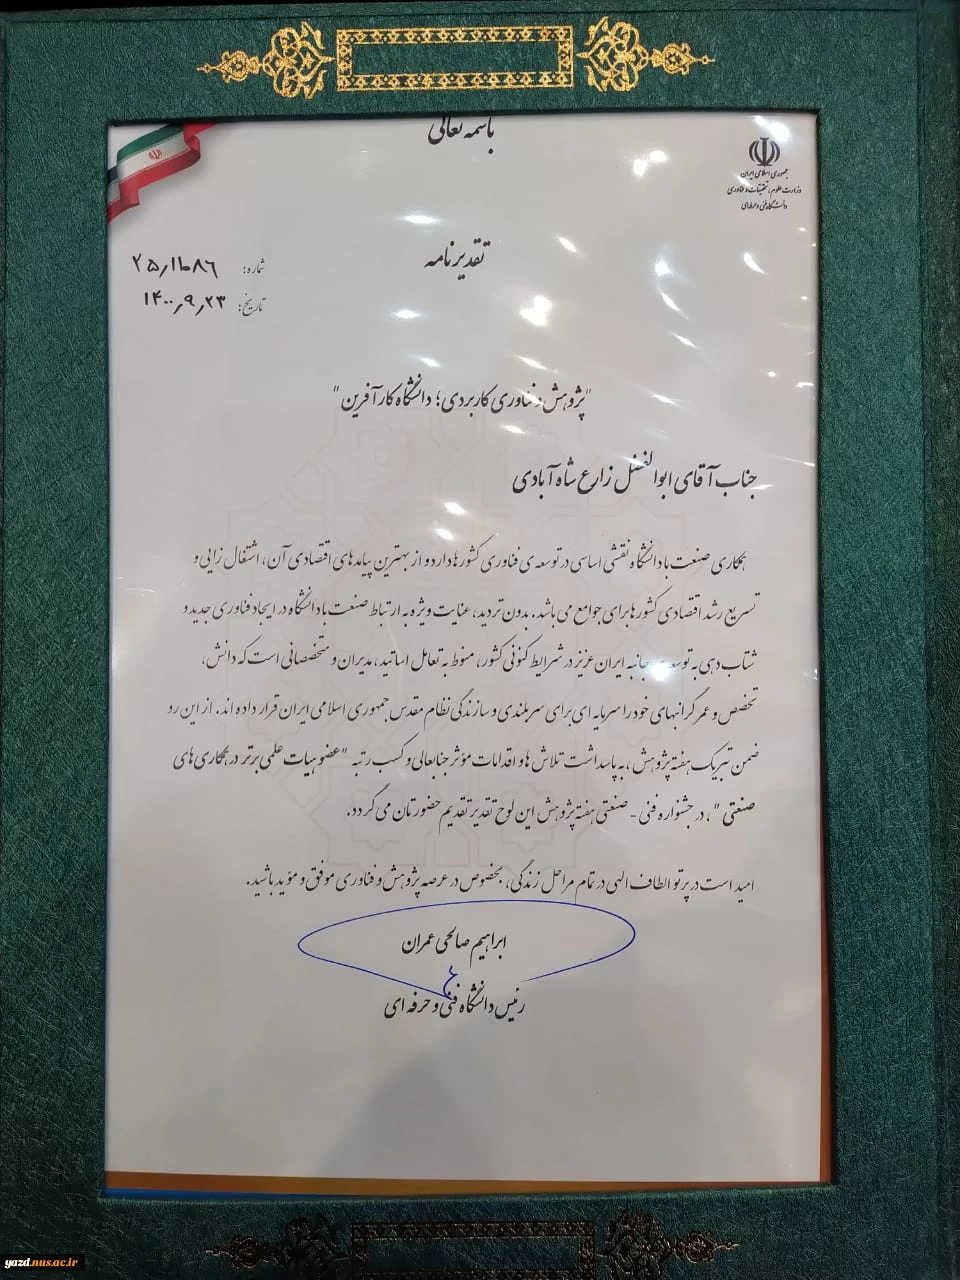 باسمه تعالی
جمهوری اسلامی ایران
وزارت علوم، تحقیقات و فناوری
دانشگاه فنی و حرفه‌ای
تقدیرنامه
شماره:
تاریخ: ۱۴۰۰٫۹٫۲۳
"پژوهش و فناوری کاربردی؛ دانشگاه کارآفرین"
جناب آقای ابوالفضل زارع شاه آبادی
همکاری صنعت با دانشگاه نقشی اساسی در توسعه ی فناوری کشورها دارد و از بهترین پیامدهای اقتصادی آن، اشتغال زایی و
تسریع رشد اقتصادی کشورها برای جوامع می باشد. بدون تردید، عنایت ویژه به ارتباط صنعت با دانشگاه در ایجاد فناوری جدید و
شتاب دهی به توسعه جانبه ایران عزیز در شرایط کنونی کشور، منوط به تعامل اساتید، مدیران و متخصصانی است که دانش،
تخصص و عمر گرانبهای خود را سرمایه ای برای سربلندی و سازندگی نظام مقدس جمهوری اسلامی ایران قرار داده اند. از این رو
ضمن تبریک هفته پژوهش، به پاسداشت تلاش ها و اقدامات مؤثر جنابعالی و کسب رتبه "عضو هیات علمی برتر در همکاری های
صنعتی"، در جشنواره فنی - صنعتی هفته پژوهش این لوح تقدیر تقدیم حضورتان می گردد.
امید است در پرتو الطاف الهی در تمام مراحل زندگی، بخصوص در عرصه پژوهش و فناوری موفق و مؤید باشید.
ابراهیم صالحی عمران
رئیس دانشگاه فنی و حرفه ای
yazd.nus.ac.ir